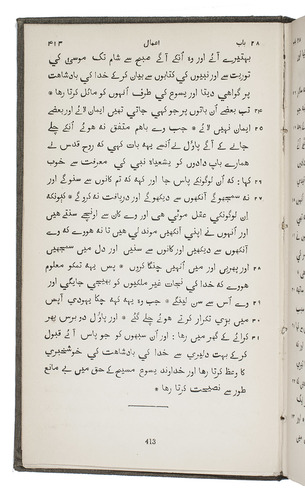 ۴۱۳ اعمال ۲۸ باب
بہتیرے آئے اور وہ اُنکے آگے صبح سے شام تک موسیٰ کی
توریت سے اور نبیوں کی کتابوں سے بیان کرکے خدا کی بادشاہت
پر گواہی دیتا اور یسوع کی طرف اُنہوں کو مائل کرتا رہا *
۲۴ تب بعضے اُن باتوں پر جو کہی جاتی تھیں ایمان لائے اور بعضے
۲۵ ایمان نہیں لائے * جب وے باہم متفق نہ ہوئے اُنکے چلے
جانے کے آگے پاؤل نے اُنسے یہہ بات کہی کہ روح قدس نے
۲۶ ہمارے باپ دادوں کو یشعیاہ نبی کی معرفت سے خوب
۲۷ کہا : کہ اُن لوگونکے پاس جا اور کہہ کہ تم کانوں سے سنوگے اور
نہ سمجھوگے آنکھوں سے دیکھوگے اور دریافت نہ کروگے * کیونکہ
اِن لوگونکی عقل موٹی ہی اور وے کان سے اونچے سنتے ہیں
اور اُنہوں نے اپنی آنکھیں موند لی ہیں تا نہ ہووے کہ وے
آنکھوں سے دیکھیں اور کانوں سے سنیں اور دل میں سمجھیں
۲۸ اور پھریں اور میں اُنہیں چنگا کروں * پس یہہ تمکو معلوم
ہووے کہ خدا کی نجات غیر ملکیوں کو بھیجی جایگی اور
۲۹ وے اُس سے سن لینگے * جب وہ یہہ کہہ چکا یہودی آپس
۳۰ میں بڑی تکرار کرتے ہوئے چلے گئے * اور پاؤل دو برس بھر
۳۱ کرائے کے گھر میں رہا : اور اُن سبھوں کو جو پاس آئے قبول
کرکے بہت دلیری سے خدا کی بادشاہت کی خوشخبری
کا وعظ کرتا رہا اور خداوند یسوع مسیح کے حق میں بے مانع
طور سے نصیحت کرتا رہا *
413